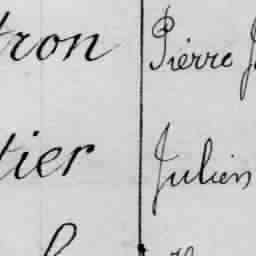 tron Pierre J
tier Julien